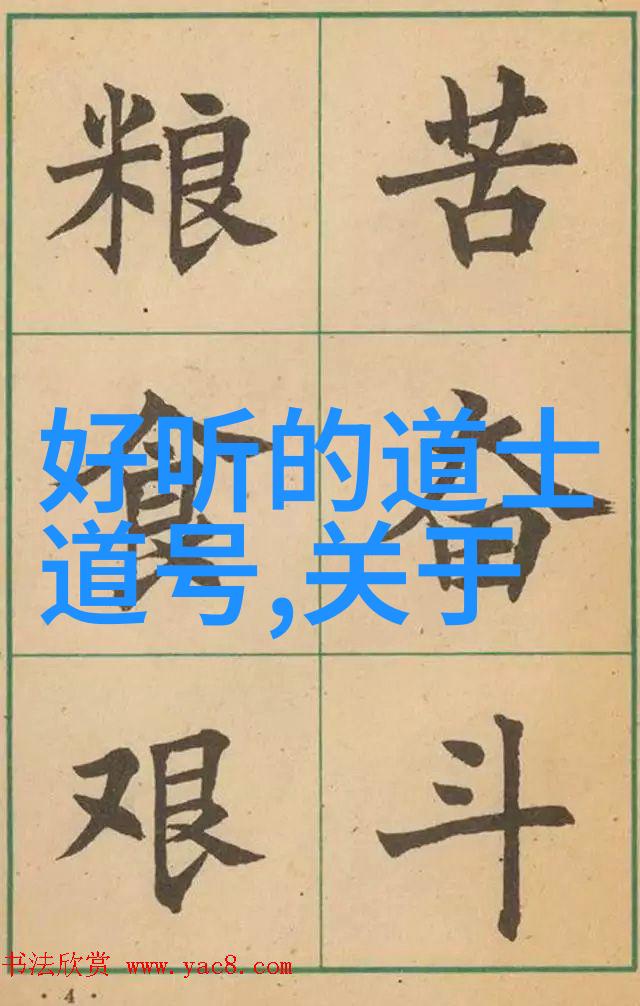 粮苦
好听的道士
道号,关于
食奋
艰斗
书法欣赏 www.yac8.com
· 4 ·